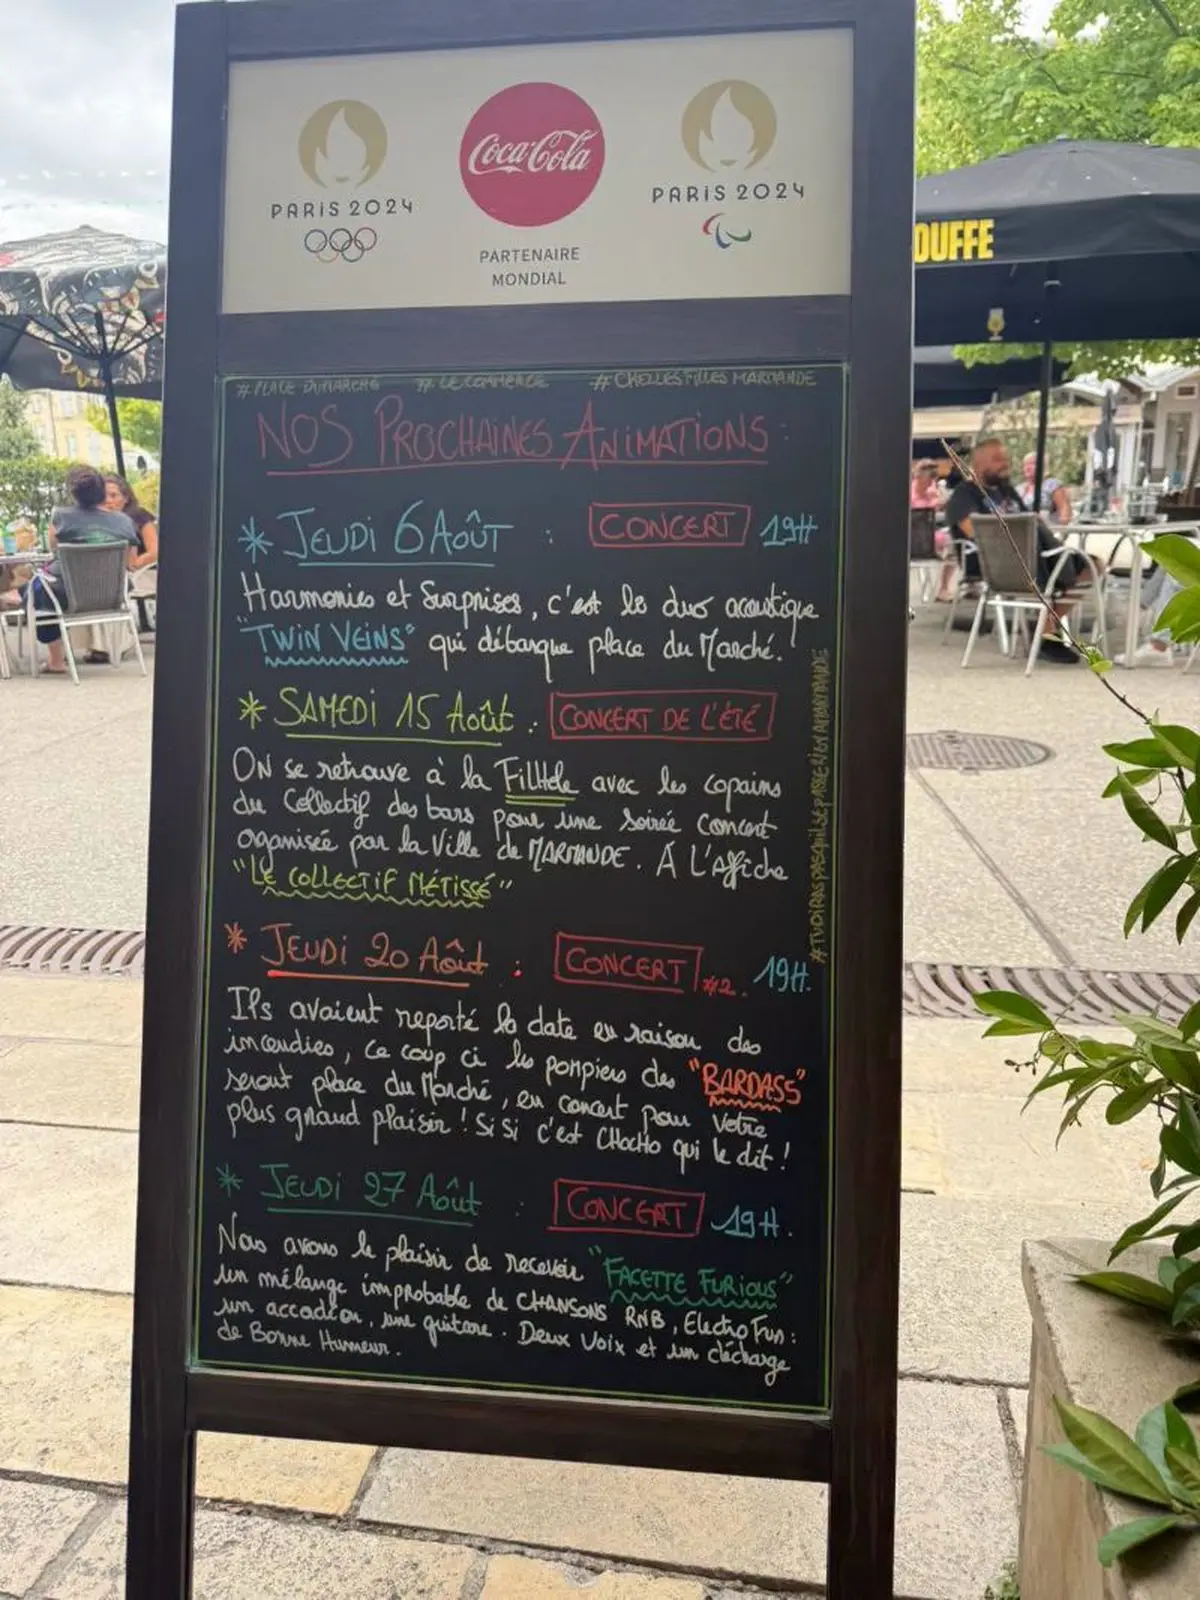 PARIS 2024
Coca-Cola
PARTENAIRE
MONDIAL
PARIS 2024
DUFFE
#PLACE DUMARCHE #LE COMMERCE #CHELLESFILLES MARMANDE
NOS PROCHAINES ANIMATIONS :
* JEUDI 6 AOÛT : CONCERT 19H
Harmonies et Surprises, c'est le duo acoustique
"TWIN VEINS" qui débarque place du Marché.
* SAMEDI 15 Août : CONCERT DE L'ÉTÉ
ON se retrouve à la FILHOLE avec les copains
du Collectif des bars pour une soirée Concert
organisée par la Ville de MARMANDE. À L'Affiche
"LE COLLECTIF MÉTISSÉ"
* JEUDI 20 Août : CONCERT #2. 19H.
Ils avaient reporté la date en raison des
incendies, ce coup ci les pompiers des "BARDASS"
seront place du Marché, en concert pour votre
plus grand plaisir ! Si Si c'est CHOCHO qui le dit !
* JEUDI 27 Août : CONCERT 19H.
Nous avons le plaisir de recevoir "FACETTE FURIOUS"
un mélange improbable de CHANSONS RNB, Electro Fun :
un accordéon, une guitare. Deux Voix et un décharge
de Bonne Humeur.